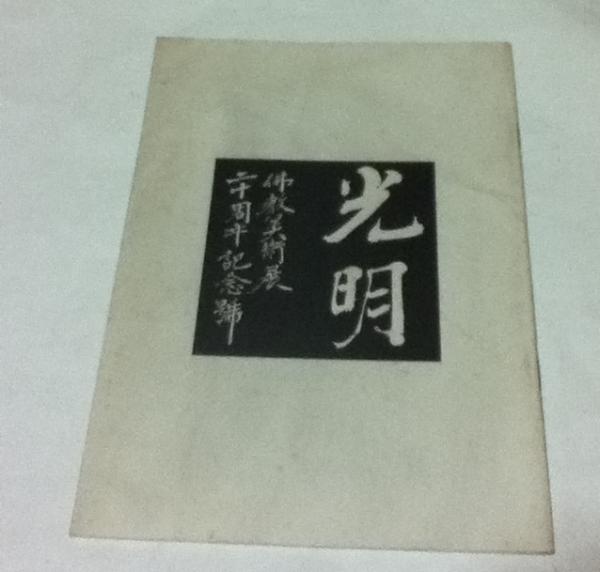 光明
佛教美術展
二十周年記念號